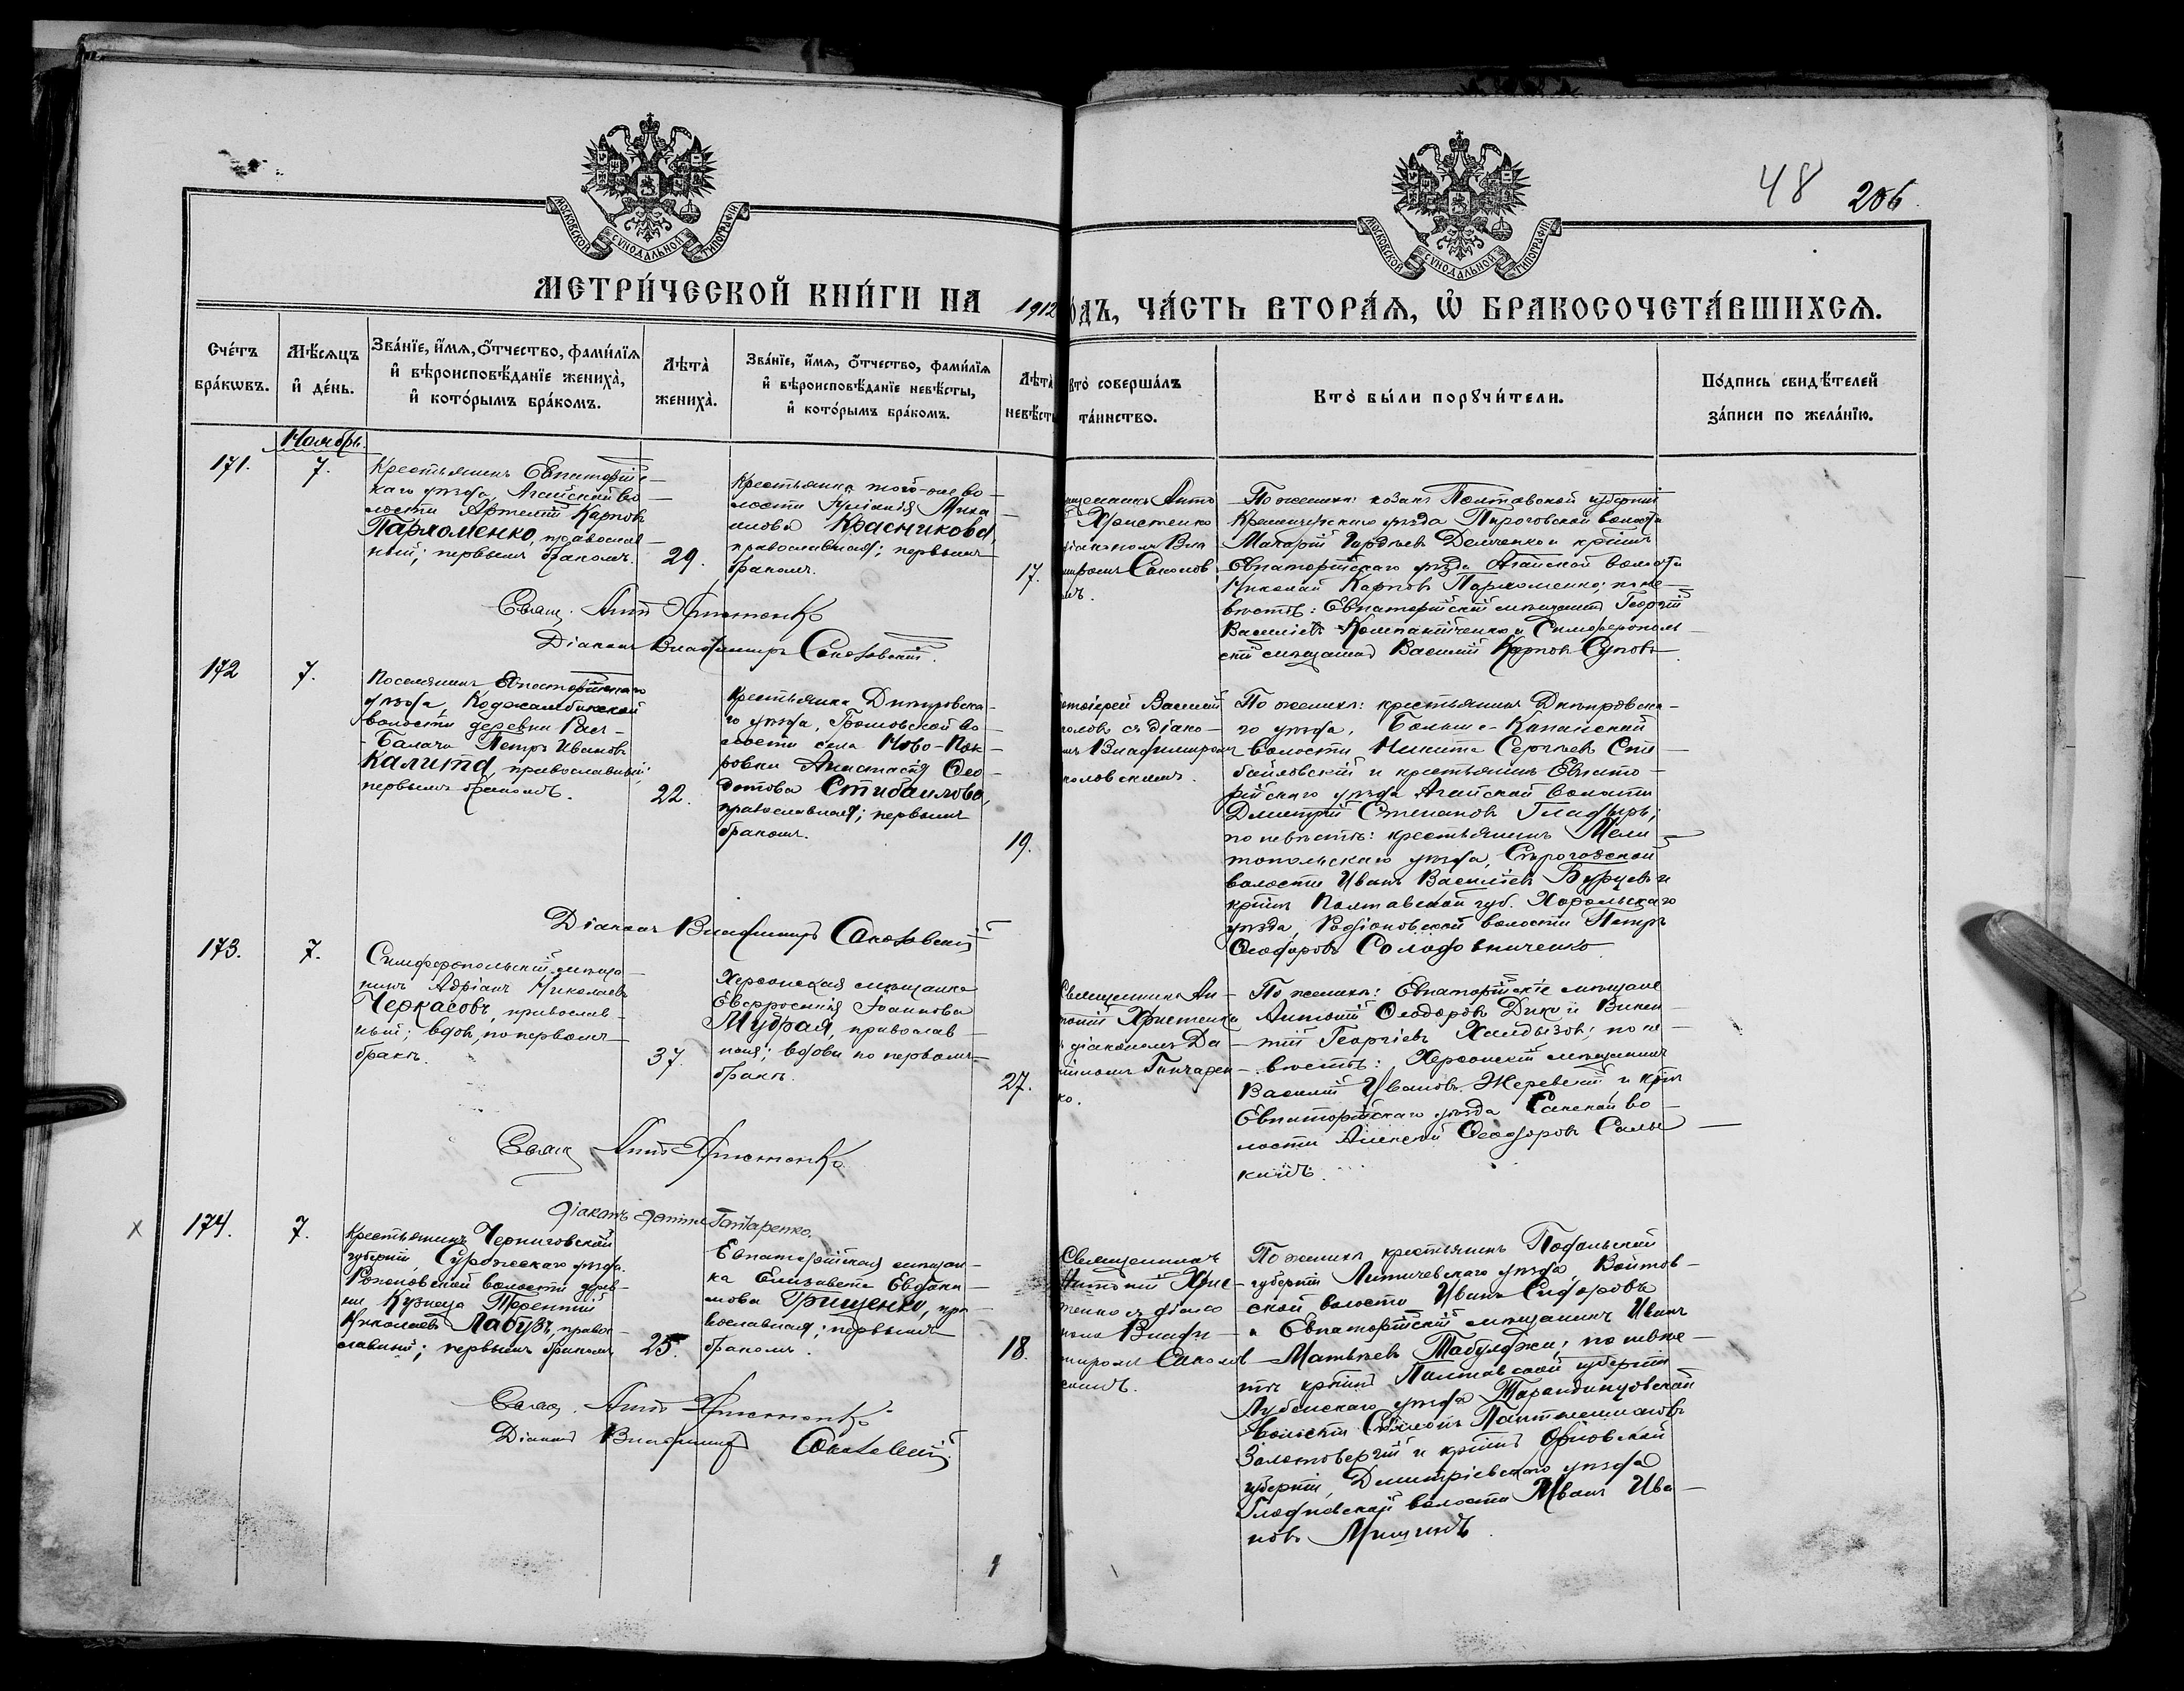 48 206
МОСКОВСКОЙ СѴНОДАЛЬНОЙ ТИПОГРАФІИ
МОСКОВСКОЙ СѴНОДАЛЬНОЙ ТИПОГРАФІИ
МЕТРИ́ЧЕСКОЙ КНИ́ГИ НА 1912
о́дъ, ЧА́СТЬ ВТОРА́Ѧ, Ѡ БРАКОСОЧЕТА́ВШИХСѦ.
Сче́тъ бра́кѡвъ.
Мѣ́сѧцъ и де́нь.
Зва́нїе, и́мѧ, ѻ́тчество, фами́лїѧ
и вѣроисповѣ́данїе жениха̀,
и кото́рымъ бра́комъ.
Лѣта̀ жениха̀.
Зва́нїе, и́мѧ, ѻ́тчество, фами́лїѧ
и вѣроисповѣ́данїе невѣ́сты,
и кото́рымъ бра́комъ.
Лѣта̀ невѣ́сты
кто̀ соверша́лъ
та́инство.
Кто̀ бы́ли порꙋчи́тели.
По́дпись свидѣ́телей
за́писи по жела́нїю.
Ноябрь.
171.
7.
Крестьянинъ Евпаторійс-
каго уѣзда, Агайской во-
лости Артемій Карповъ
Пархоменко, православ-
ный; первымъ бракомъ.
29.
Крестьянка того-же во-
лости Іуліанія Миха
илова Красникова,
православная; первымъ
бракомъ.
17.
Анто
Христенко
діакономъ Вла
миромъ Соколов
мъ.
По женихѣ: козакъ Полтавской губерніи
Кременчугскаго уѣзда Пироговской волости
Макарій Гордѣевъ Демченко и кр-нинъ
Евпаторійскаго уѣзда Агайской волости
Николай Карповъ Пархоменко; по не-
вѣстѣ: Евпаторійскій мѣщанинъ Георгій
Василіевъ Компанійченко и Симферополь-
скій мѣщанинъ Василій Карповъ Суковъ.
Свящ. Анто Христенко
Діаконъ Владимиръ Соколовскій.
172
7.
Поселянинъ Евпаторійскаго
уѣзда, Коджамбакской
волости деревни Рас-
Балачи Петръ Ивановъ
Калита, православный;
первымъ бракомъ.
22.
Крестьянка Днѣпровска-
го уѣзда, Громовской во-
лости села Ново-Пок-
ровки Анастасія Ѳео-
дотова Стибаилова,
православная; первымъ
бракомъ.
19.
Протоіерей Василій
съ діако-
мъ Владимиромъ
коловскимъ.
По женихѣ: крестьянинъ Днѣпровска-
го уѣзда, Больше-Копанской
волости Никита Сергѣевъ Сти-
байловскій и крестьянинъ Евпато-
рійскаго уѣзда Агайской волости
Димитрій Степановъ Гладырь;
по невѣстѣ: крестьянинъ Мели-
топольскаго уѣзда, Сѣрогозской
волости Иванъ Василіевъ Бурцевъ и
кр-нинъ Полтавской губ. Хорольскаго
уѣзда, Родіоновской волости Петръ
Ѳеодоровъ Солодовниченко.
Діаконъ Владимиръ Соколовскій
173.
7.
Симферопольскій мѣща-
нинъ Адріанъ Николаевъ
Черкасовъ, православ-
ный; вдов., по первомъ
бракѣ.
37.
Херсонская мѣщанка
Евфросинія Іоаннова
Мудрая, православ-
ная; вдова по первомъ
бракѣ.
27.
Священникъ Ан-
тоній Христенко
съ діакономъ Да-
ніиломъ Гончарен-
ко.
По женихѣ: Евпаторійскіе мѣщане
Антоній Ѳеодоровъ Дика и Викен-
тій Георгіевъ Халдызов; по не-
вѣстѣ: Херсонскій мѣщанинъ
Василій Ивановъ Жеревскій и кр-нинъ
Евпаторійскаго уѣзда Сакской во-
лости Алексѣй Ѳеодоровъ Салы-
кинъ.
Свящ. Анто Христенко
діаконъ Даніилъ Гончаренко.
х 174.
7.
Крестьянинъ Черниговской
губерніи, Суражскаго уѣзда
волости дерев-
ни Кузнеца Терентій
Николаевъ Лабузъ, право-
славный; первымъ бракомъ.
25.
Евпаторійская мѣщан-
ка Елизавета Евдоки-
мова Грищенко, пра-
вославная; первымъ
бракомъ.
18.
Священникъ
Антоній Хрис-
тенко съ діако
номъ Влади-
миромъ Соколов
скимъ.
По женихѣ крестьянинъ Подольской
губерніи Литичевскаго уѣзда, Войтов-
ской волости Иванъ Сидоровъ
и Евпаторійскій мѣщанинъ Иванъ
Матвѣевъ Табулджи; по невѣс-
тѣ кр-нинъ Полтавской губерніи
Лубенскаго уѣзда Тарандинцовской
волости Симеонъ Пантелеимоновъ
Золотовергій и кр-нинъ Орловской
губерніи, Димитріевскаго уѣзда
Глодневской волости Иванъ Ива-
новъ Мишинъ.
Свящ. Анто Христенко
Діаконъ Владимиръ Соколовскій.